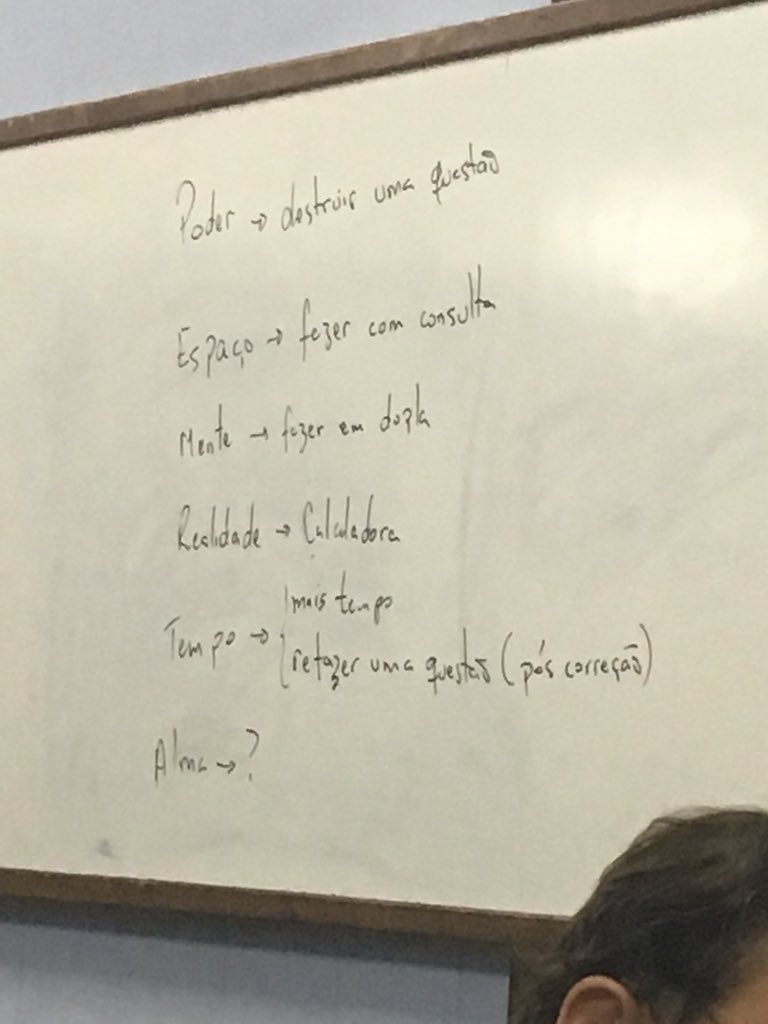 Poder → destruir uma questão
Espaço → fazer com consulta
Mente → fazer em dupla
Realidade → Calculadora
mais tempo
Tempo → refazer uma questão (pós correção)
Alma → ?